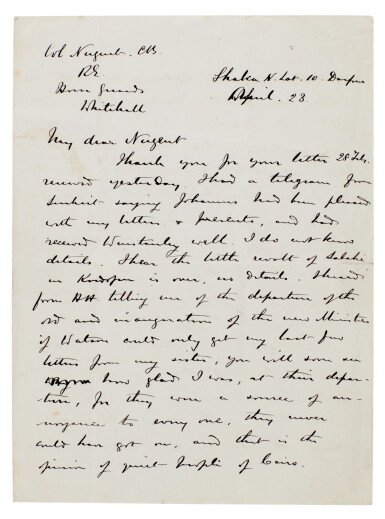 Col Nugent. CB.
RE
Horse Guards
Whitehall
Shaka N. Lat. 10. Darfour
April. 23
My dear Nugent
Thank you for your letter 28 Feb.
received yesterday. I had a telegram from
Senheit saying Johannes had been pleased
with my letters & presents, and had
received Winstanley well. I do not know
details. I hear the little revolt of Sabahi
in Kordofan is over, no details. I heard
from HH telling me of the departure of the
old and inauguration of the new Ministers
if Watson could only get my last few
letters from my sister, you will soon see
how glad I was, at their depar-
ture, for they were a source of an-
noyance to every one, they never
could have got on, and that is the
opinion of quiet people of Cairo.